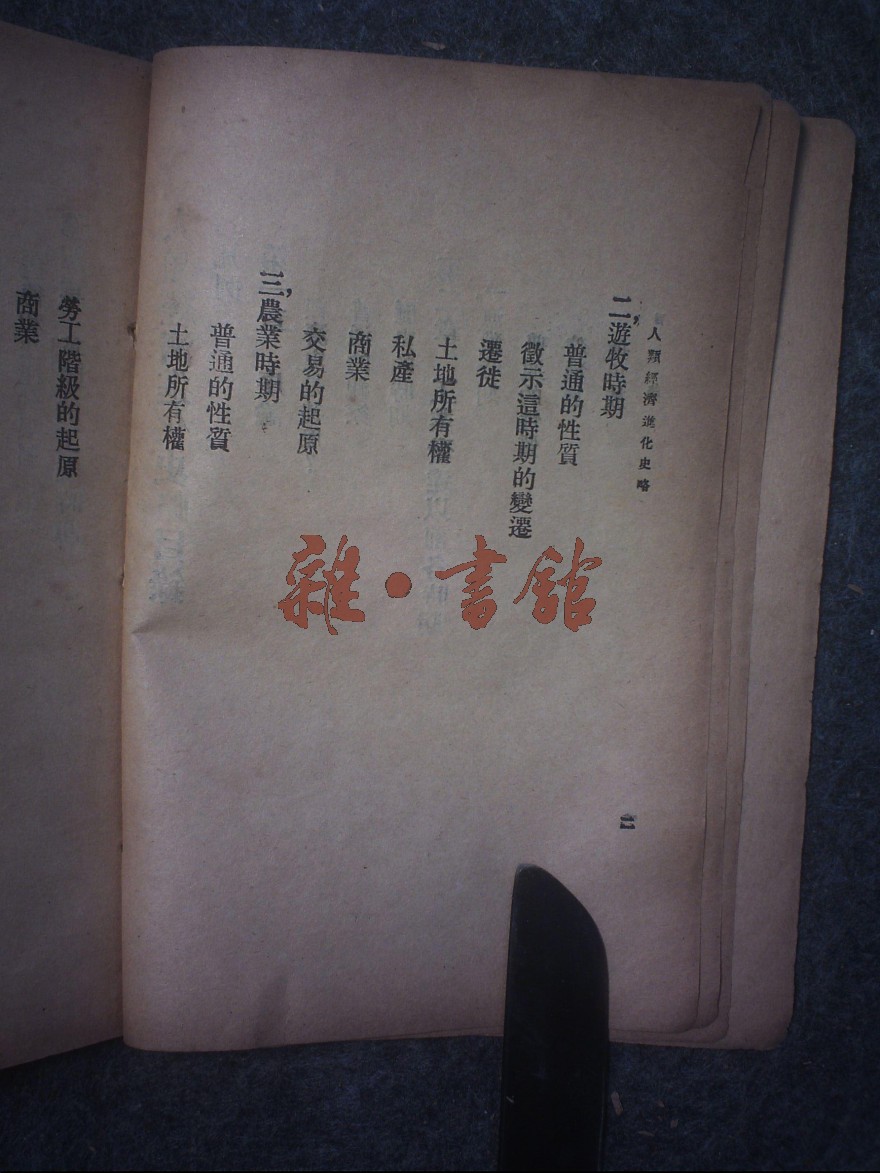 人類經濟進化史略
二，遊牧時期
普通的性質
徵示這時期的變遷
遷徙
土地所有權
私產
商業
交易的起原
三，農業時期
普通的性質
土地所有權
二
勞工階級的起原
商業
雜·書館